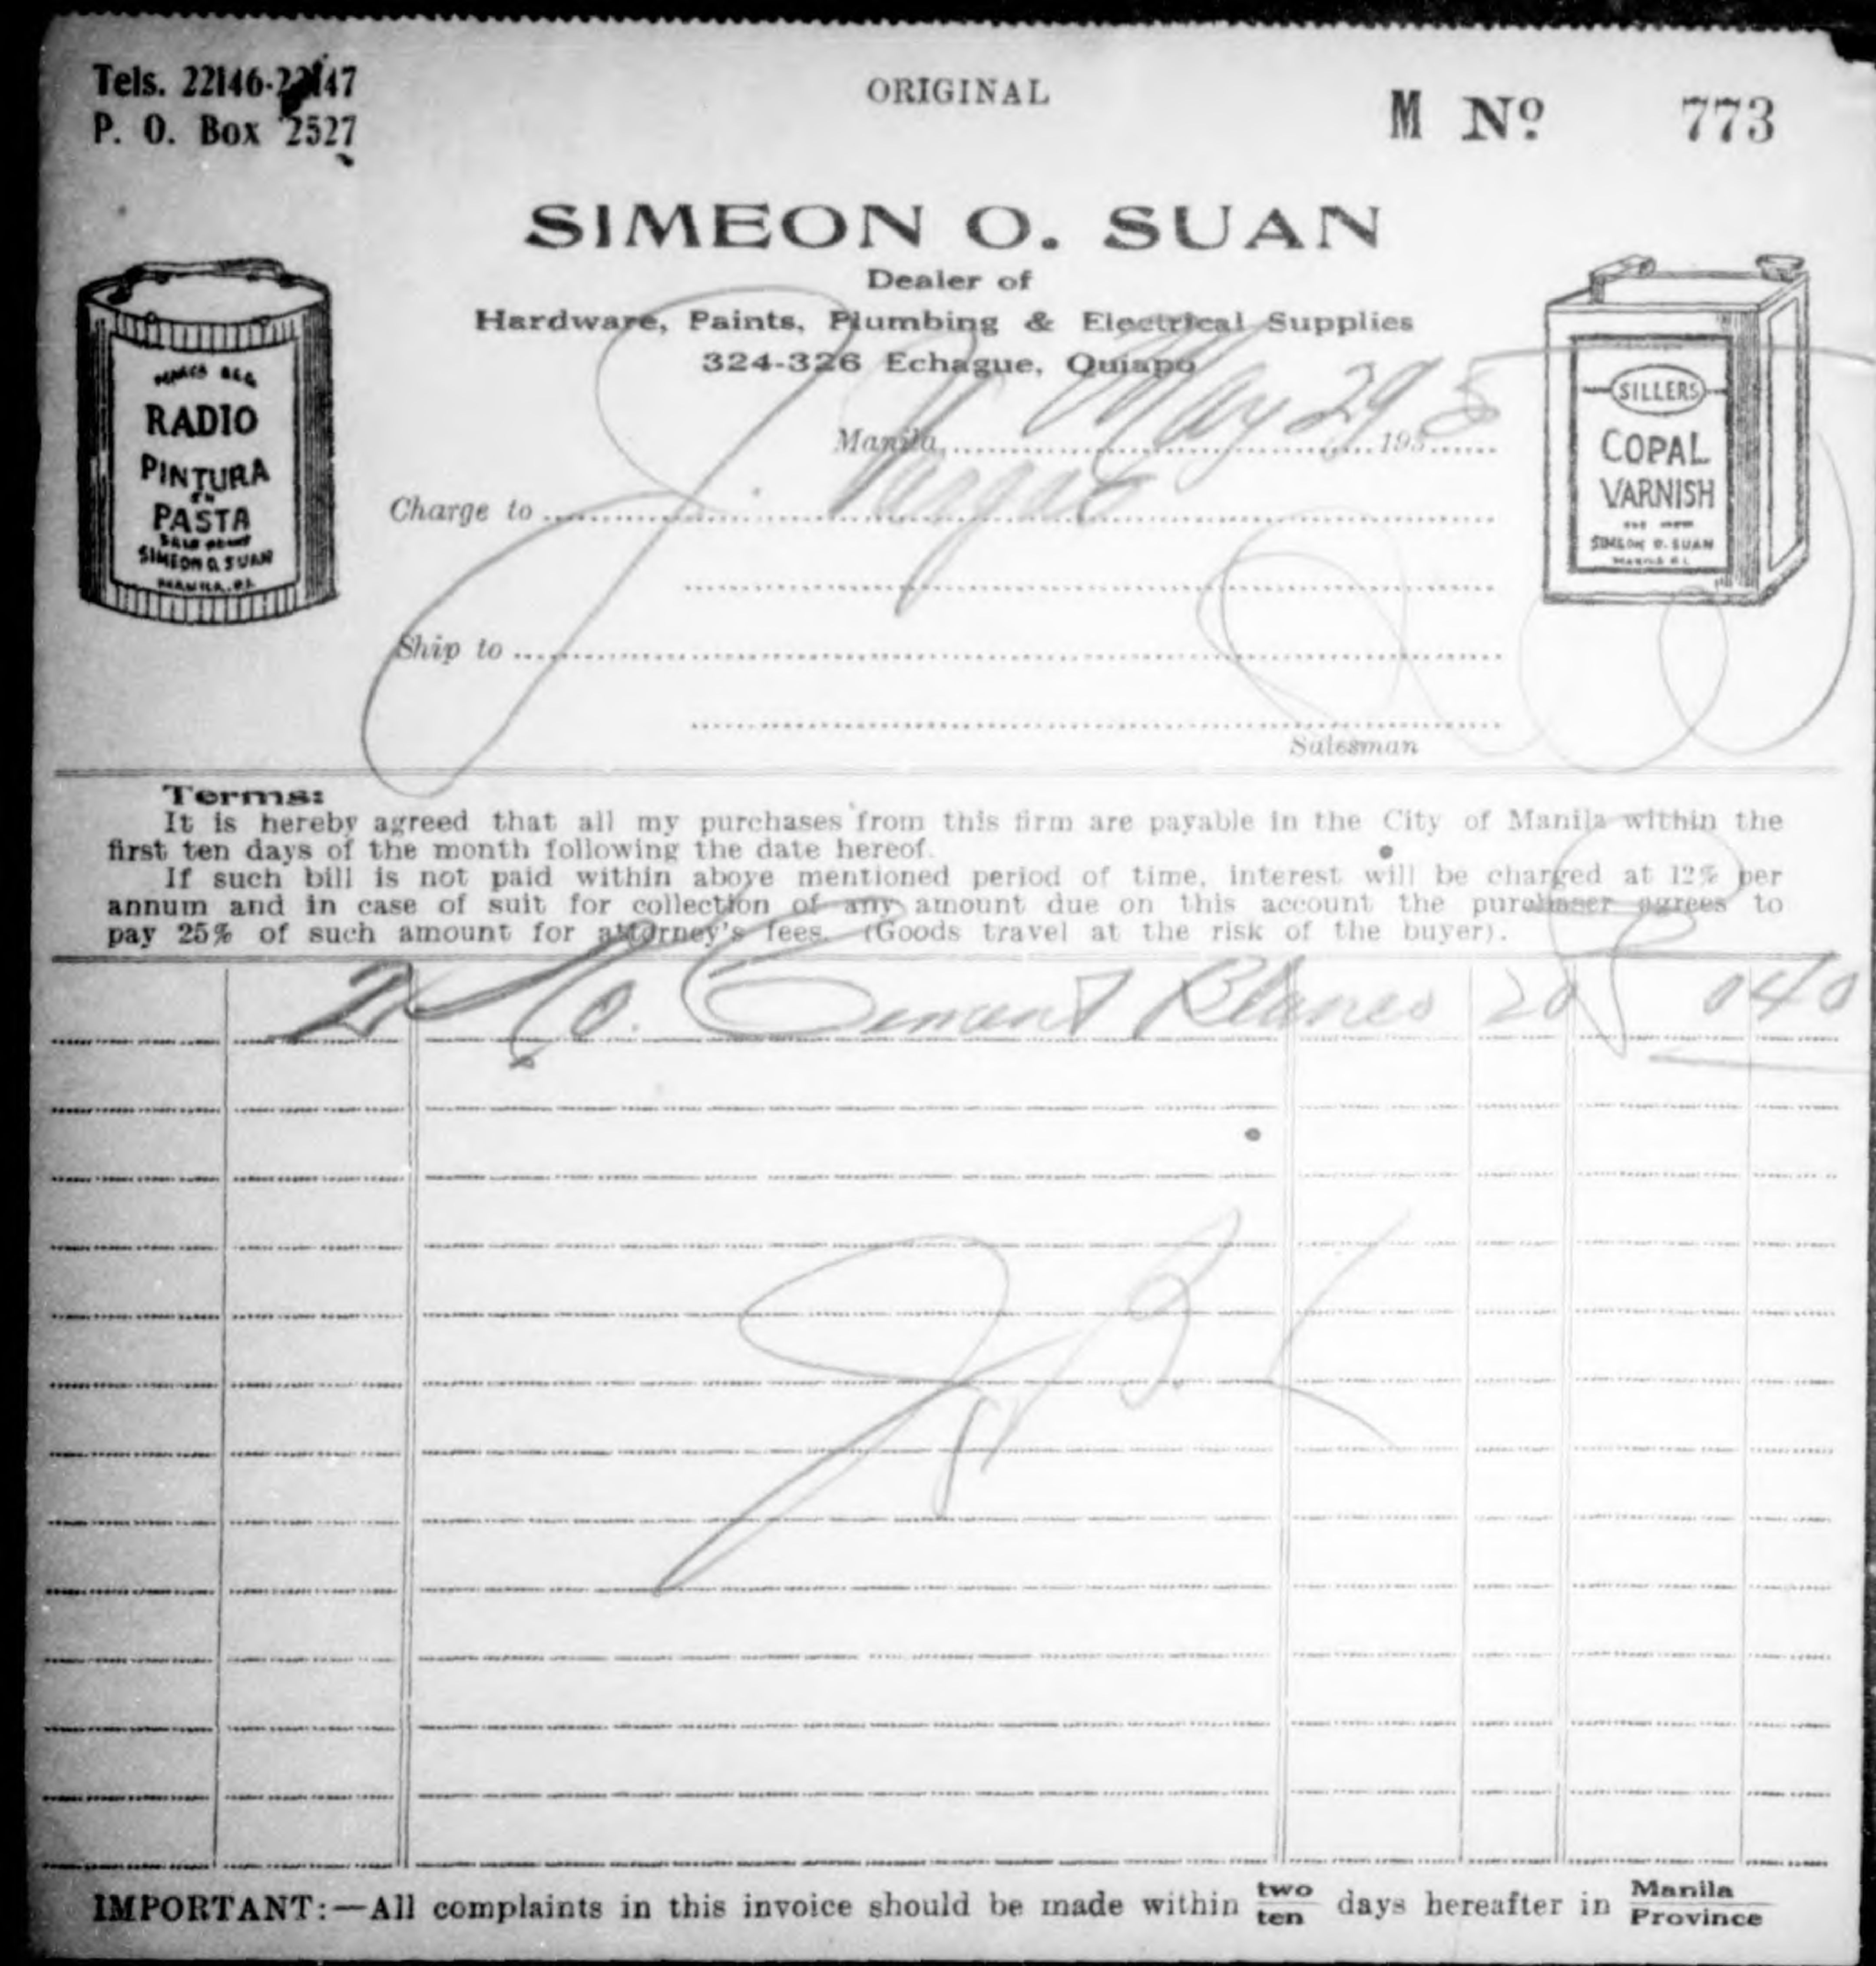 Tels. 22146-22147
P. O. Box 2527
ORIGINAL
M Nº 773
SIMEON O. SUAN
Dealer of
Hardware, Paints, Plumbing & Electrical Supplies
324-326 Echague, Quiapo
RADIO
PINTURA
EN
PASTA
SIMEON O. SUAN
MANILA, P.I.
SILLERS
COPAL
VARNISH
SIMEON O. SUAN
MANILA P.I.
Manila, May 29 1935
Charge to J. Vargas
Ship to
Salesman
Terms:
It is hereby agreed that all my purchases from this firm are payable in the City of Manila within the
first ten days of the month following the date hereof.
If such bill is not paid within above mentioned period of time, interest will be charged at 12% per
annum and in case of suit for collection of any amount due on this account the purchaser agrees to
pay 25% of such amount for attorney's fees. (Goods travel at the risk of the buyer).
2 Cement 20 P 040
IMPORTANT:—All complaints in this invoice should be made within two/ten days hereafter in Manila/Province